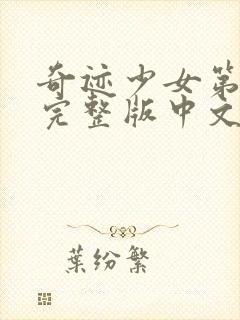 奇迹少女第
完整版中文
葉纷繁